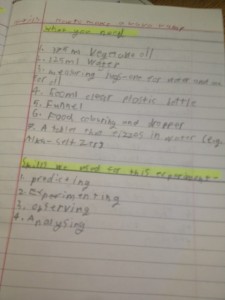 What you need
1. 125ml Vegetable oil
2. 125ml Water
3. measuring for water and
oil
4. 500ml clear plastic bottle
5. Funnel
6. Food colouring and dropper
7. A tablet that fizzes in water (e.g.
Skills we used for this experiment-
1. predicting
2. Experimenting
3. observing
4. Analysing